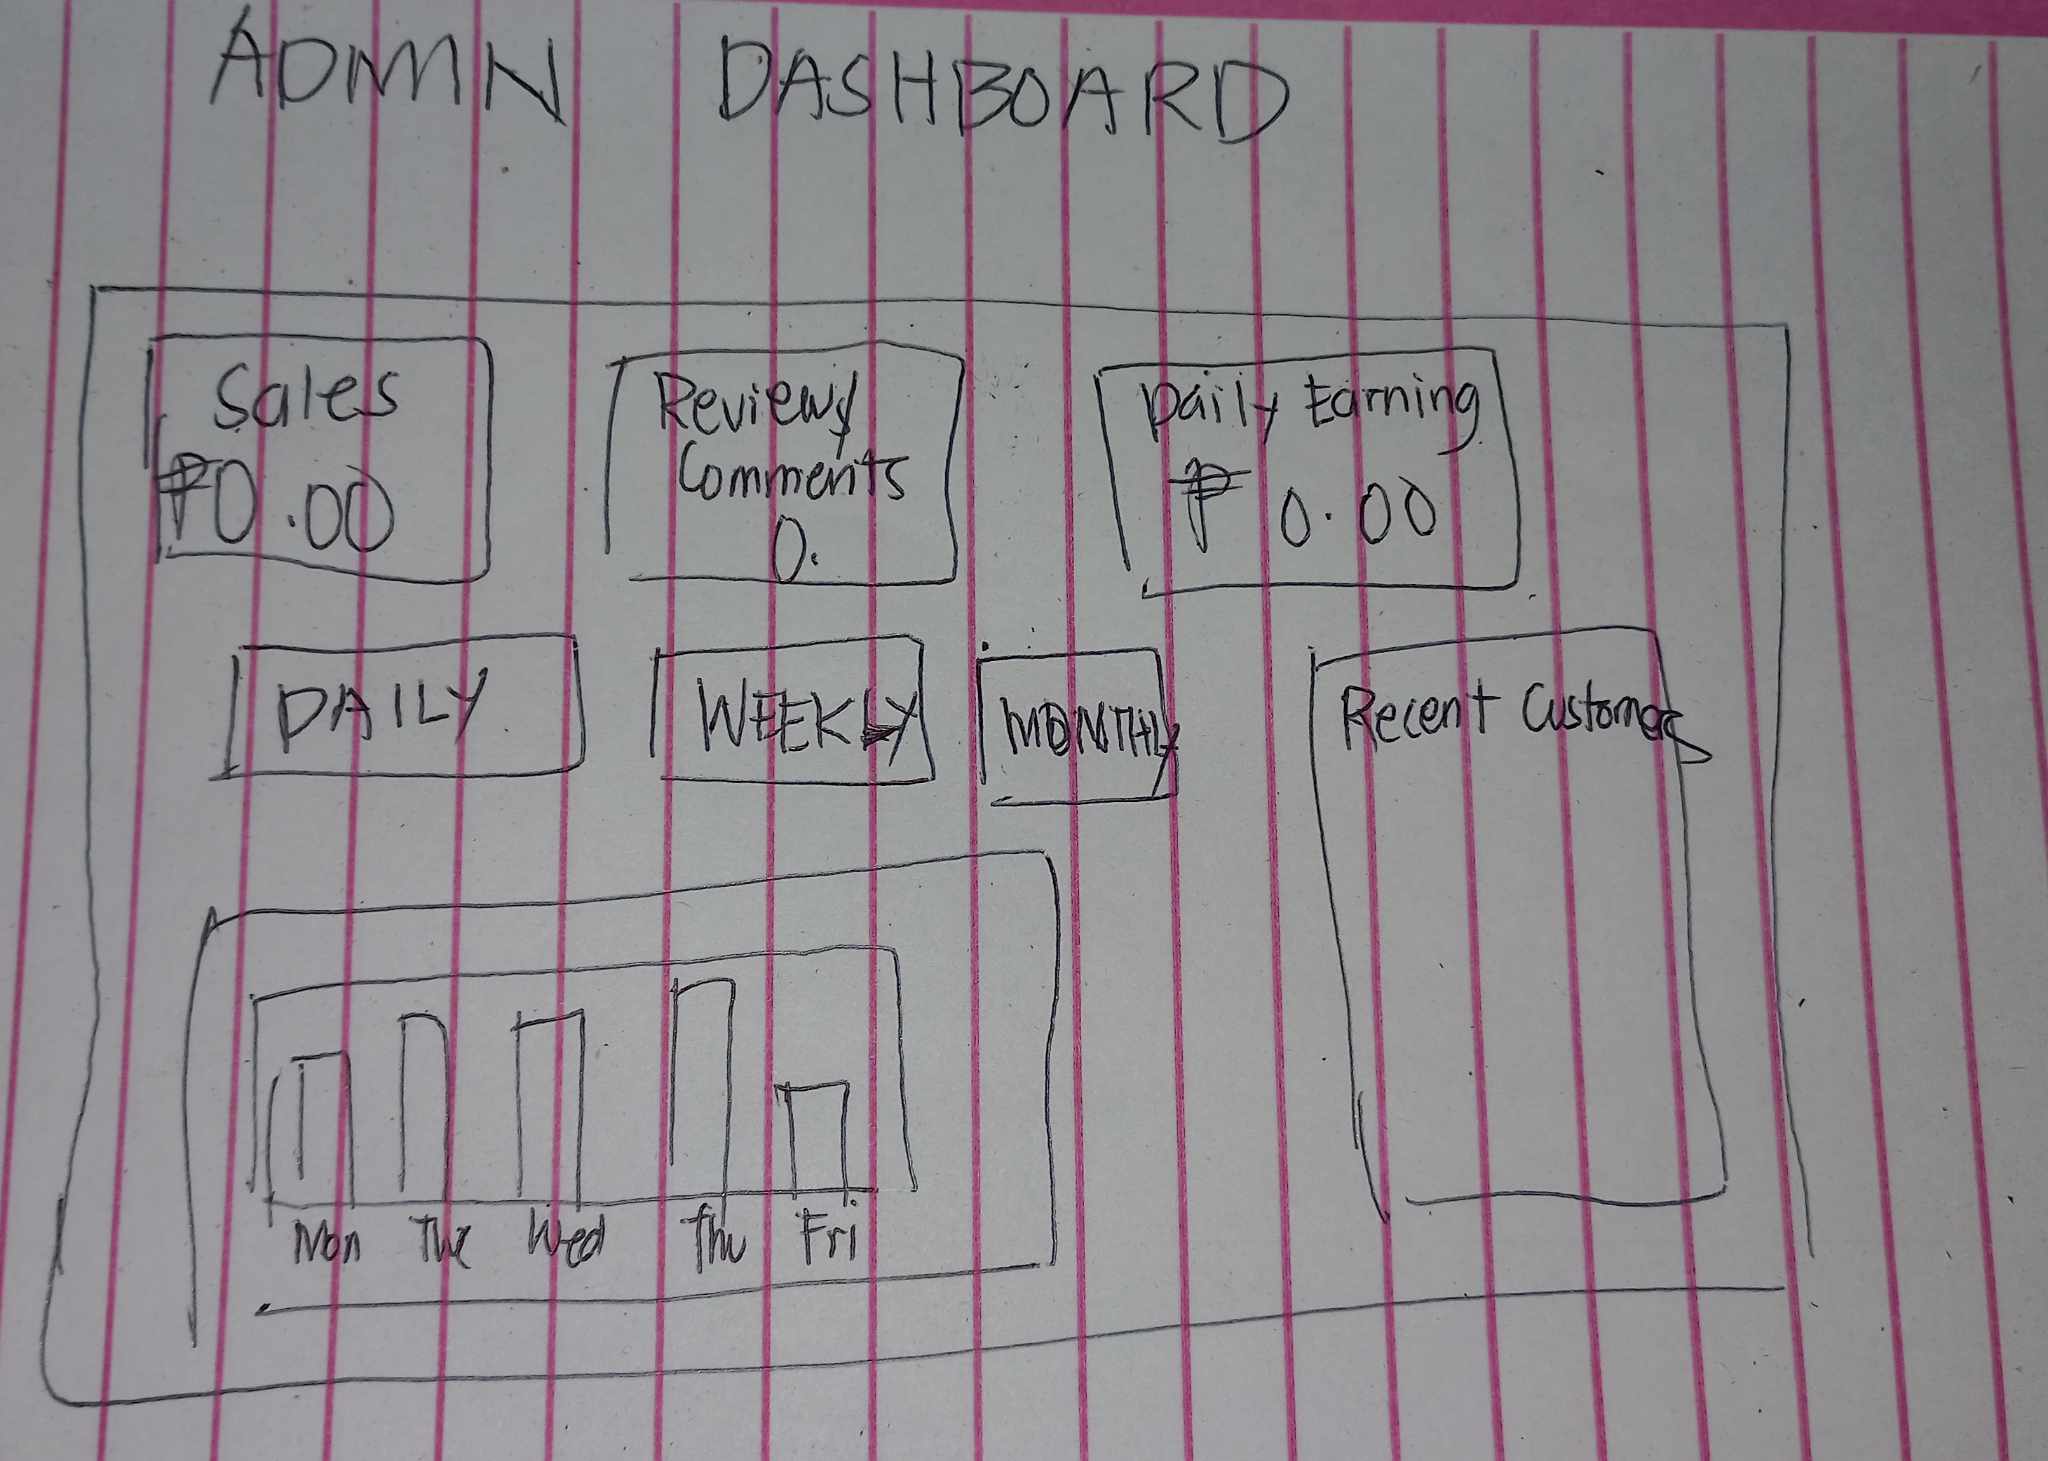 ADMIN DASHBOARD
Sales
₱0.00
Reviews/
Comments
0.
Daily Earning
₱ 0.00
DAILY
WEEKLY
MONTHLY
Recent Customers
Mon Tue Wed Thu Fri